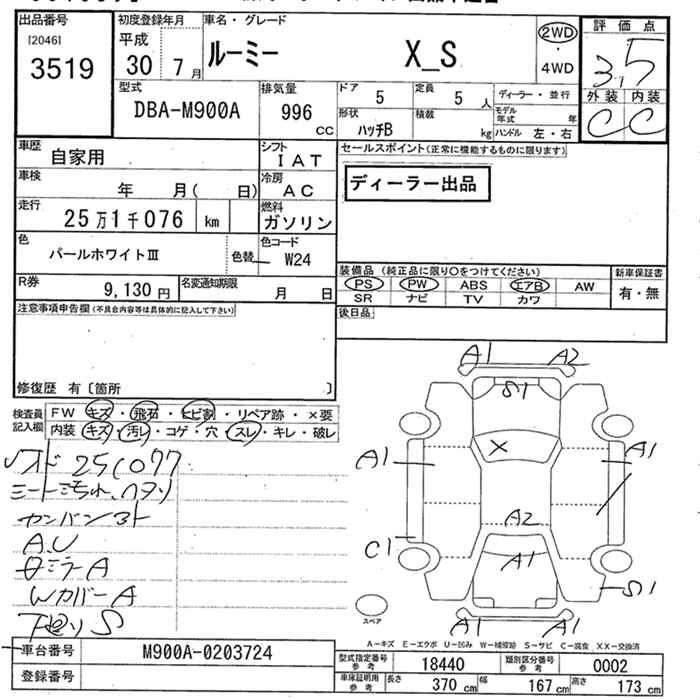 出品番号
[2046]
3519
初度登録年月
平成
30 7月
車名・グレード
ルーミー X_S
2WD
・
4WD
評価点
3.5
外装 内装
C C
型式
DBA-M900A
排気量
996
CC
ドア
5
定員
5 人
形状
ハッチB
積載
kg
ディーラー・並行
モデル年式 年
ハンドル 左・右
車歴
自家用
シフト
IAT
車検
年 月( 日)
冷房
AC
走行
25万1千076 km
燃料
ガソリン
色
パールホワイトⅢ
色替
色コード
W24
R券
9,130円
名変通知期限
月 日
セールスポイント(正常に機能するものに限ります)
ディーラー出品
装備品 (純正品に限り○をつけてください)
PS PW ABS エアB AW
SR ナビ TV カワ
新車保証書
有・無
後日品
注意事項申告欄(不具合内容等は具体的に記入して下さい)
修復歴 有〔箇所 〕
検査員記入欄
FW キズ・飛石・ヒビ割・リペア跡・×要
内装 キズ・汚レ・コゲ・穴・スレ・キレ・破レ
251077
カンバン
A.U
ミラーA
WカバーA
下廻りS
A1 A2
S1
X
A1 A1
A2
A1
C1
S1
A1 A1
スペア
A-キズ E-エクボ U-凹み W-補修跡 S-サビ C-腐食 XX-交換済
車台番号
M900A-0203724
登録番号
型式指定番号
参考
18440
類別区分番号
参考
0002
車庫証明用
参考
長さ 370 cm 幅 167 cm 高さ 173 cm